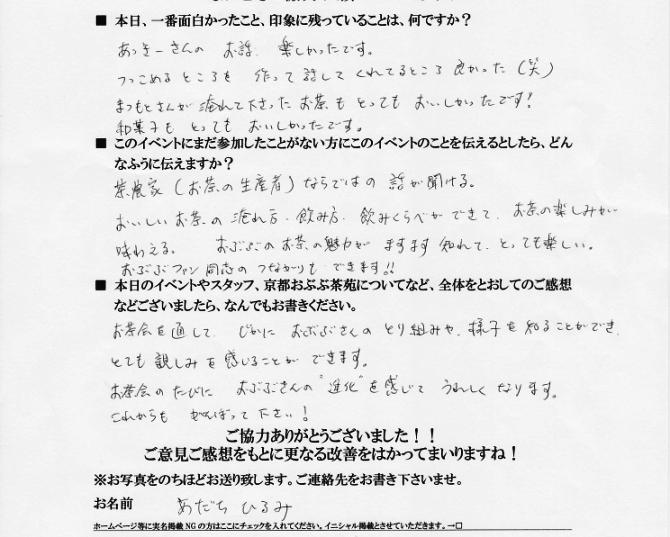 ■ 本日、一番面白かったこと、印象に残っていることは、何ですか？
あっきーさんの お話、楽しかったです。
つっこめるところを 作って 話して くれてるところ 良かった（笑）
まつもとさんが 淹れて下さった お茶も とっても おいしかったです！
和菓子も とっても おいしかったです。
■ このイベントにまだ参加したことがない方にこのイベントのことを伝えるとしたら、どん
なふうに伝えますか？
茶農家（お茶の生産者）ならではの 話が 聞ける。
おいしいお茶の 淹れ方・飲み方・飲みくらべが できて、お茶の楽しみが
味わえる。 おぶぶの お茶の 魅力が ますます 知れて、とっても 楽しい。
おぶぶファン 同志の つながりも できます!!
■ 本日のイベントやスタッフ、京都おぶぶ茶苑についてなど、全体をとおしてのご感想
などございましたら、なんでもお書きください。
お茶会を通して、じかに おぶぶさんの とり組みや、様子を 知ることができ、
とても 親しみを 感じることが できます。
お茶会の たびに おぶぶさんの "進化" を 感じて うれしく なります。
これからも がんばって 下さい！
ご協力ありがとうございました！！
ご意見ご感想をもとに更なる改善をはかってまいりますね！
※お写真をのちほどお送り致します。ご連絡先をお書き下さいませ。
お名前 あだち ひろみ
ホームページ等に実名掲載NGの方はここにチェックを入れてください。イニシャル掲載とさせていただきます。→□